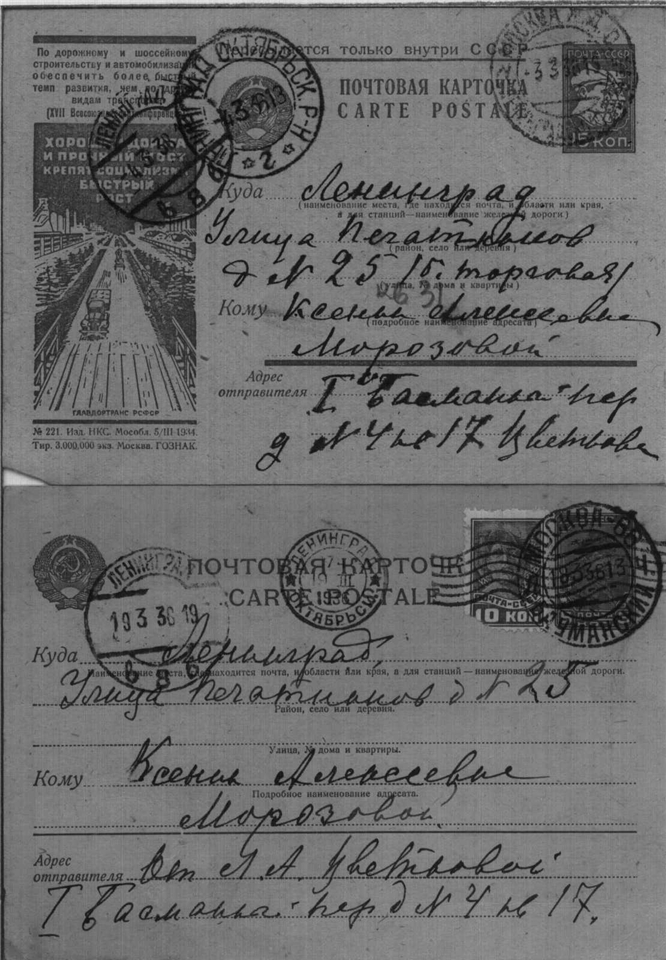 По дорожному и шоссейному
строительству и автомобилизации
обеспечить более быстрый
темп развития, чем по другим
видам транспорта
(XVII Всесоюзн. конференция)
ХОРОШИЙ
И ПРОЧНЫЙ МОСТ
КРЕПЯТ СОЦИАЛИЗМА
БЫСТРЫЙ
РОСТ
ГЛАВДОРТРАНС РСФСР
№ 221. Изд. НКС. Мособл. 5/III-1934.
Тир. 3.000.000 экз. Москва. ГОЗНАК.
Пересылается только внутри СССР
ПОЧТОВАЯ КАРТОЧКА
CARTE POSTALE
ПОЧТА СССР
15 КОП.
ЛЕНИНГРАД ОКТЯБРЬСК. Р-Н
4.3.36 13
2
Куда Ленинград
(наименование места, где находится почта, и области или края,
а для станций—наименование железной дороги.)
Улица Печатников
(район, село или деревня)
д N 25 (б. торговая)
(улица, № дома и квартиры)
Кому Ксении Алексеевне
(подробное наименование адресата)
Морозовой
Адрес
отправителя I Басманный пер
д N 4 кв 17 Цветкова
ПОЧТОВАЯ КАРТОЧКА
CARTE POSTALE
ЛЕНИНГРАД
19 3 36 19
ЛЕНИНГРАД
19 III
1936
ОКТЯБРЬСК
10 КОП
МОСКВА-66
18.3.36 13
Куда Ленинград,
Наименование места, где находится почта, и области или края, а для станции—наименование железной дороги.
Улица Печатников д N 25
Район, село или деревня.
Улица, № дома и квартиры.
Кому Ксении Алексеевне
Подробное наименование адресата.
Морозовой
Адрес
отправителя От Л. А. Цветковой
I Басманный пер д N 4 кв 17.